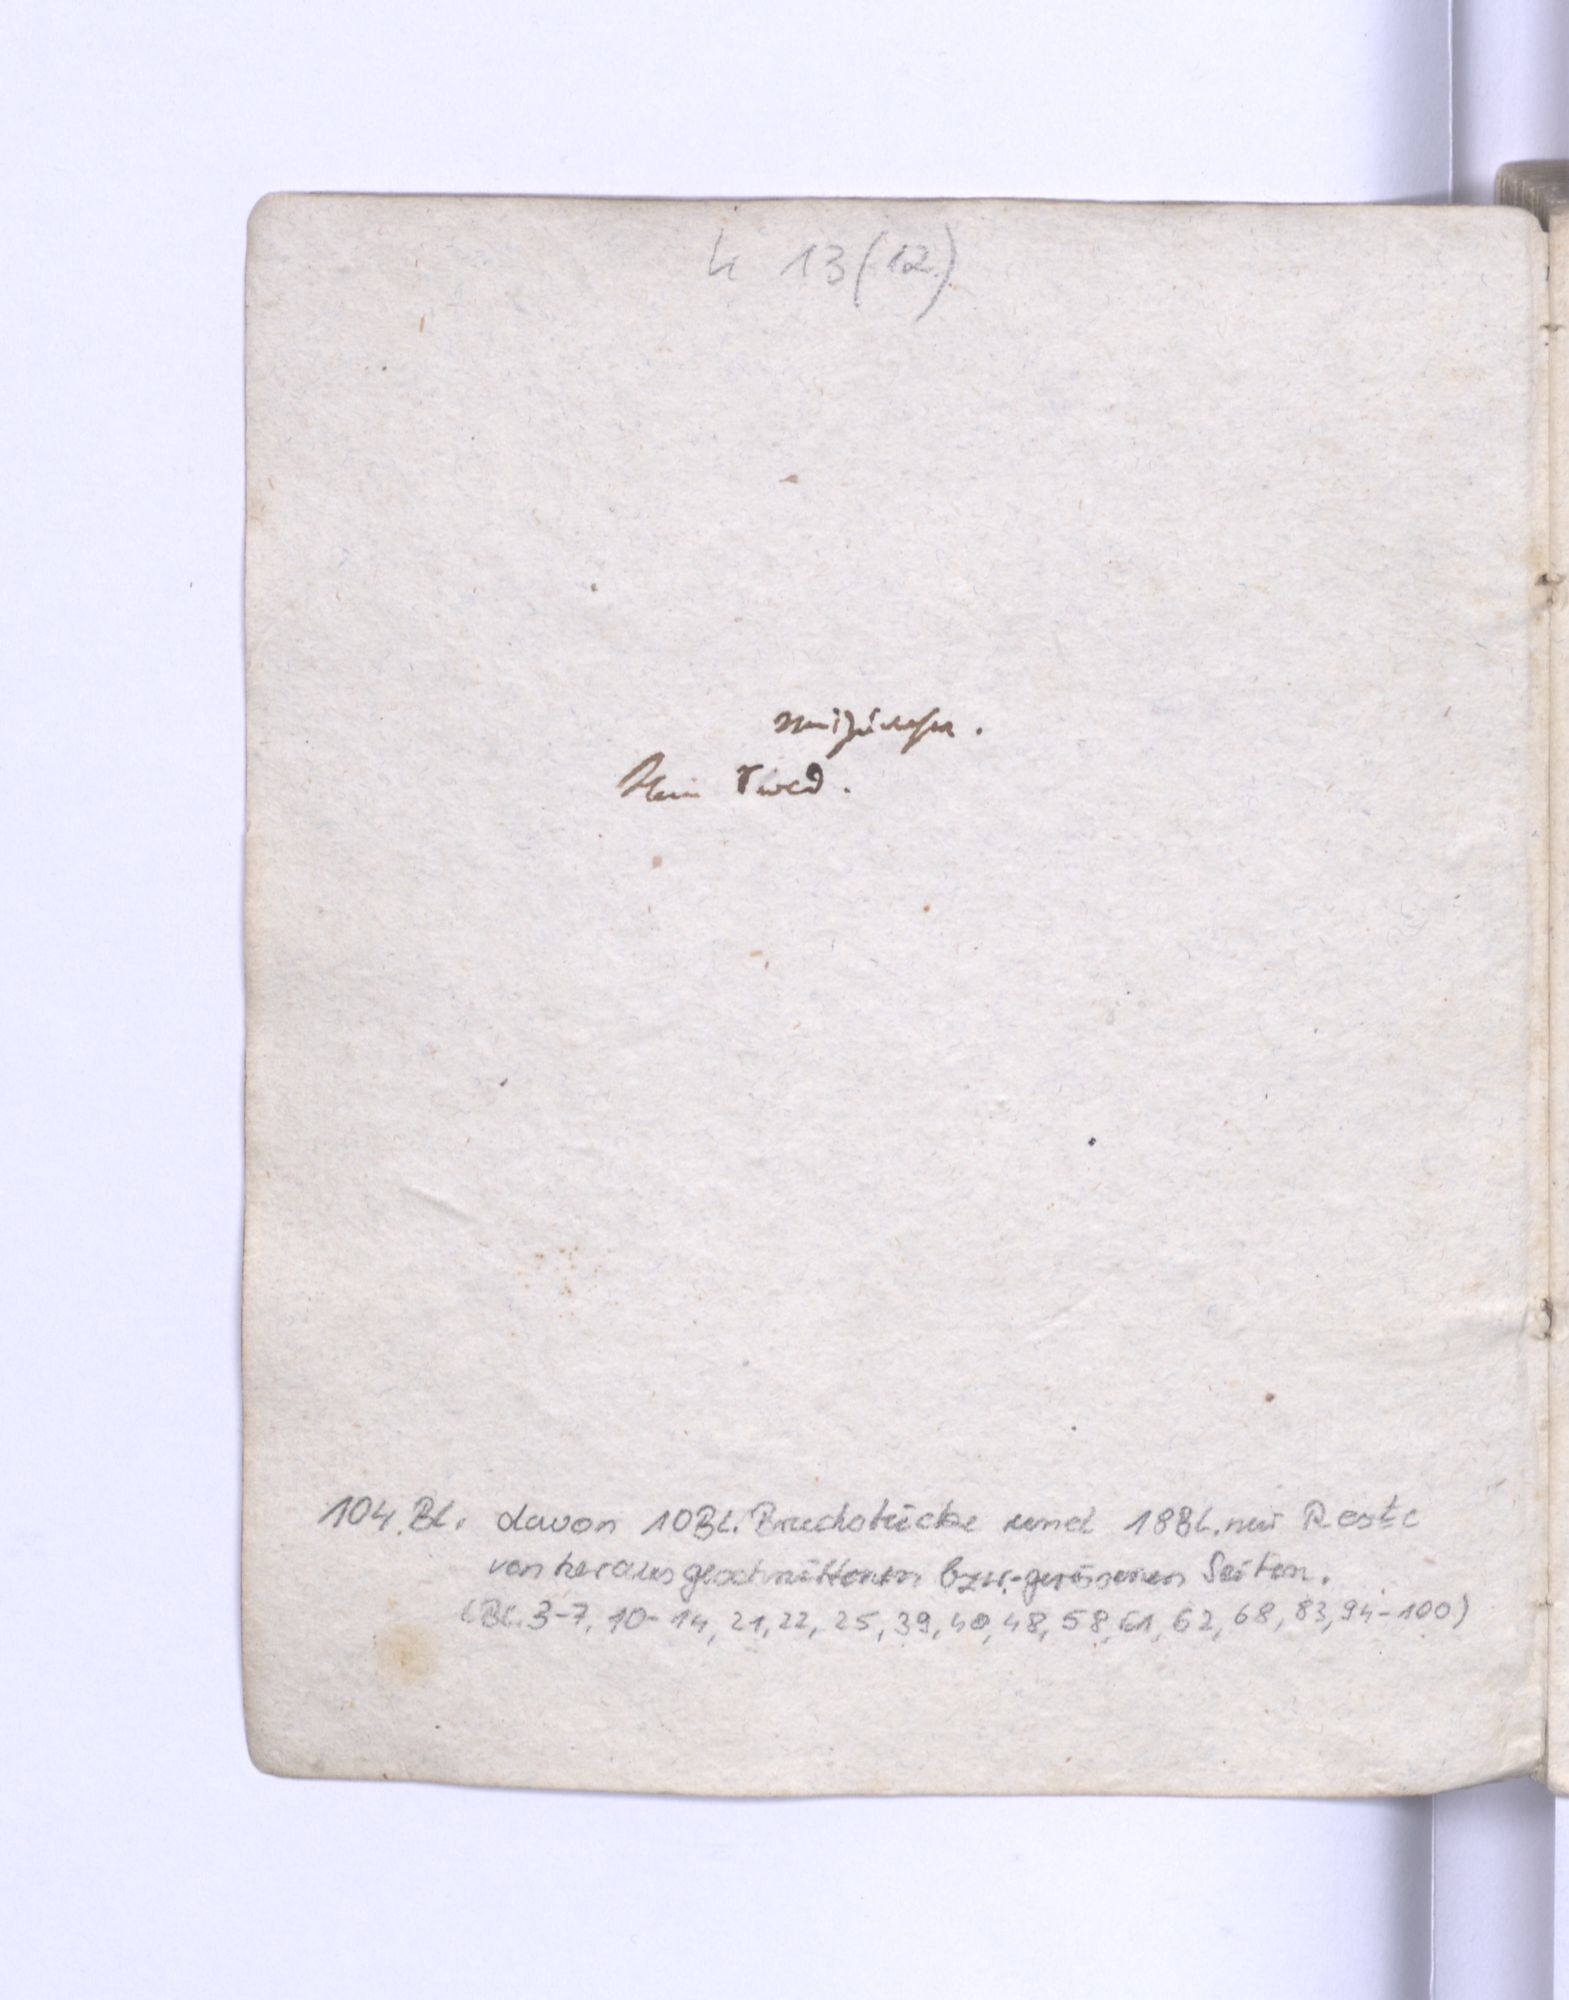 h 13 (12)
104 Bl. davon 10 Bl. Bruchstücke und 18 Bl. nur Reste
von herausgeschnittenen bzw. gerissenen Seiten.
(Bl. 3-7, 10-14, 21, 22, 25, 39, 40, 48, 58, 61, 62, 68, 83, 94-100)